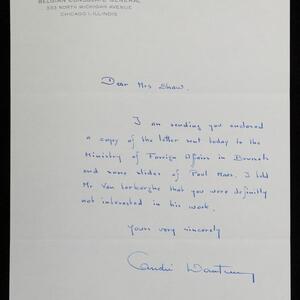 BELGIAN CONSULATE GENERAL
333 NORTH MICHIGAN AVENUE
CHICAGO 1, ILLINOIS
Dear Mrs Shaw.
I am sending you enclosed
a copy of the letter sent today to the
Ministry of Foreign Affairs in Brussels
and some slides of Paul Maas. I told
Mr Van Lerberghe that you were definitly
not interested in his work.
Yours very sincerely